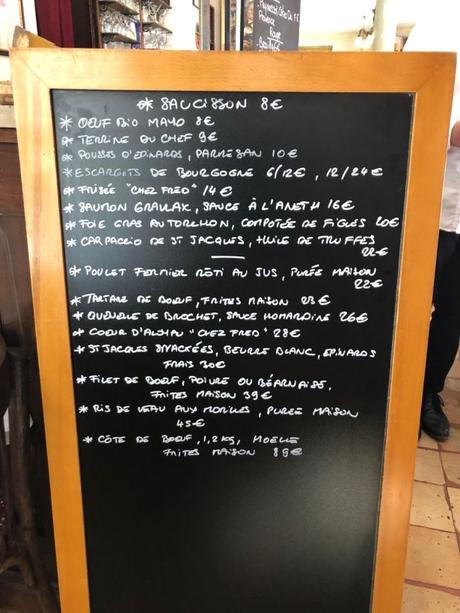 * SAUCISSON 8€
* OEUF BIO MAYO 8€
* TERRINE DU CHEF 9€
* POUSSES D'EPINARDS, PARMESAN 10€
* ESCARGOTS DE BOURGOGNE 6/12€, 12/24€
* FRISÉE "CHEZ FRED" 14€
* SAUMON GRAVLAX, SAUCE À L'ANETH 16€
* FOIE GRAS AU TORCHON, COMPOTÉE DE FIGUES 20€
* CARPACCIO DE ST JACQUES, HUILE DE TRUFFES
22€
* POULET FERMIER RÔTI AU JUS, PURÉE MAISON
22€
* TARTARE DE BOEUF, FRITES MAISON 23€
* QUENELLE DE BROCHET, SAUCE HOMARDINE 26€
* COEUR D'ALOYAU "CHEZ FRED" 28€
* ST JACQUES SNACKÉES, BEURRE BLANC, EPINARDS
FRAIS 30€
* FILET DE BOEUF, POIVRE OU BÉARNAISE,
FRITES MAISON 39€
* RIS DE VEAU AUX MORILLES, PURÉE MAISON
45€
* CÔTE DE BOEUF, 1,2 KG, MOELLE
FRITES MAISON 89€